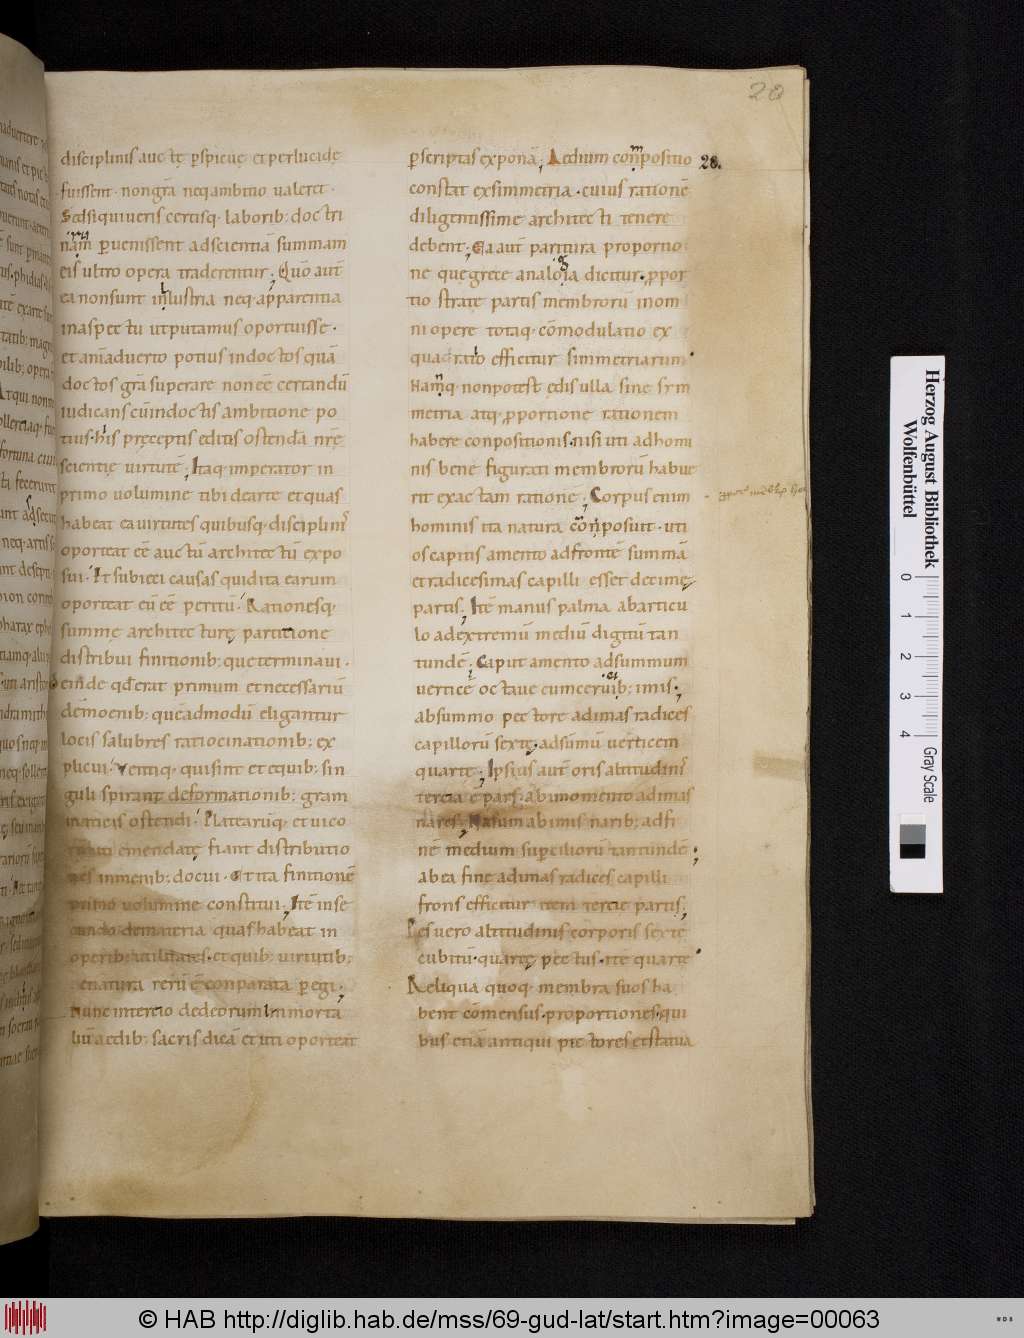 20
disciplinis aucte p̄spicue et perlucide
fuissent· non gr̄a neq; ambitio ualeret·
Sed si qui ueris certisq· laborib: doctri
nam p̄uenissent ad scientiā summam
eis ultro opera traderentur; Quō aut̄
ea non sunt inlustria neq· apparentia
in aspectu ut putamus oportuisse·
et anīaduerto potius indoctos quā
doctos gr̄a superare non eē certandū
iudicans cū indoctis ambitione po
tius· his pręceptis editis ostendā nr̄ę
scientię uirtutē; Itaq· imperator in
primo uolumine tibi de arte et quas
habeat ea uirtutes quibusq· disciplinis
oporteat eē auctū architectū expo
sui· Et subieci causas quid ita earum
oporteat eū eē peritū· Rationesq·
summę architecturę partitione
distribui finitionib: que terminaui·
Deinde qđ erat primum et necessariū
dēmoenib: quēadmodū eligantur
locis salubres ratiocinationib: ex
plicui· Ventiq· qui sint et e quib: sin
guli spirant deformationib: gram
maticis ostendi· Platearūq· et uico
emendatę fiant distributio
nes in menib: docui· Et ita finitionē
primo uolumine constitui; Itē in se
cundo de materia quas habeat in
operib: utilitates· et quib: uirtutib:
e natura rerū ē conparata pegi;
nunc in tercio de deorum Inmorta
liū aedib: sacris dicā et uti oporteat
p̄scriptas exponā; Aedium conpositio
28.
constat ex simmetria· cuius rationē
diligentissime architecti tenere
debent; Ea aut̄ paritura proportio
ne que grece analogia dicitur· ppor
tio st rate partis membrorū in om
ni opere totaq· cōmodulatio ex
qua ratio efficitur simmetriarum·
Namq· non potest edis ulla sine sym
metria atq· pportione rationem
habere conpositionis· nisi uti ad homi
nis bene figurati membrorū habue
rit exactam rationē; Corpus enim
hominis ita natura conposuit· uti
os capitis a mento ad frontē summā
et radices imas capilli esset decimę
partis; Itē manus palma ab articu
lo ad extremū mediū digitū tan
tundē; Caput a mento ad summum
verticē octaue cum ceruicib: imis;
ab summo pectore ad imas radices
capillorū sexte· ad sūmū uerticem
quarte; Ipsius aut̄ oris altitudinis
tercia ē pars· ab imo mento ad imas
nares; Nasum ab imis narib: ad fi
nē medium superciliorū tantundē;
ab ea fine ad imas radices capilli
frons efficitur item tercie partis;
Pes uero altitudinis corporis sexte
cubitū· quartę pectus· itē quarte·
Reliqua quoq· membra suos ha
bent cōmensus· proportiones· qui
bus etiā antiqui pictores et statua
Herzog August Bibliothek
Wolfenbüttel
0 1 2 3 4
Gray Scale
© HAB http://diglib.hab.de/mss/69-gud-lat/start.htm?image=00063